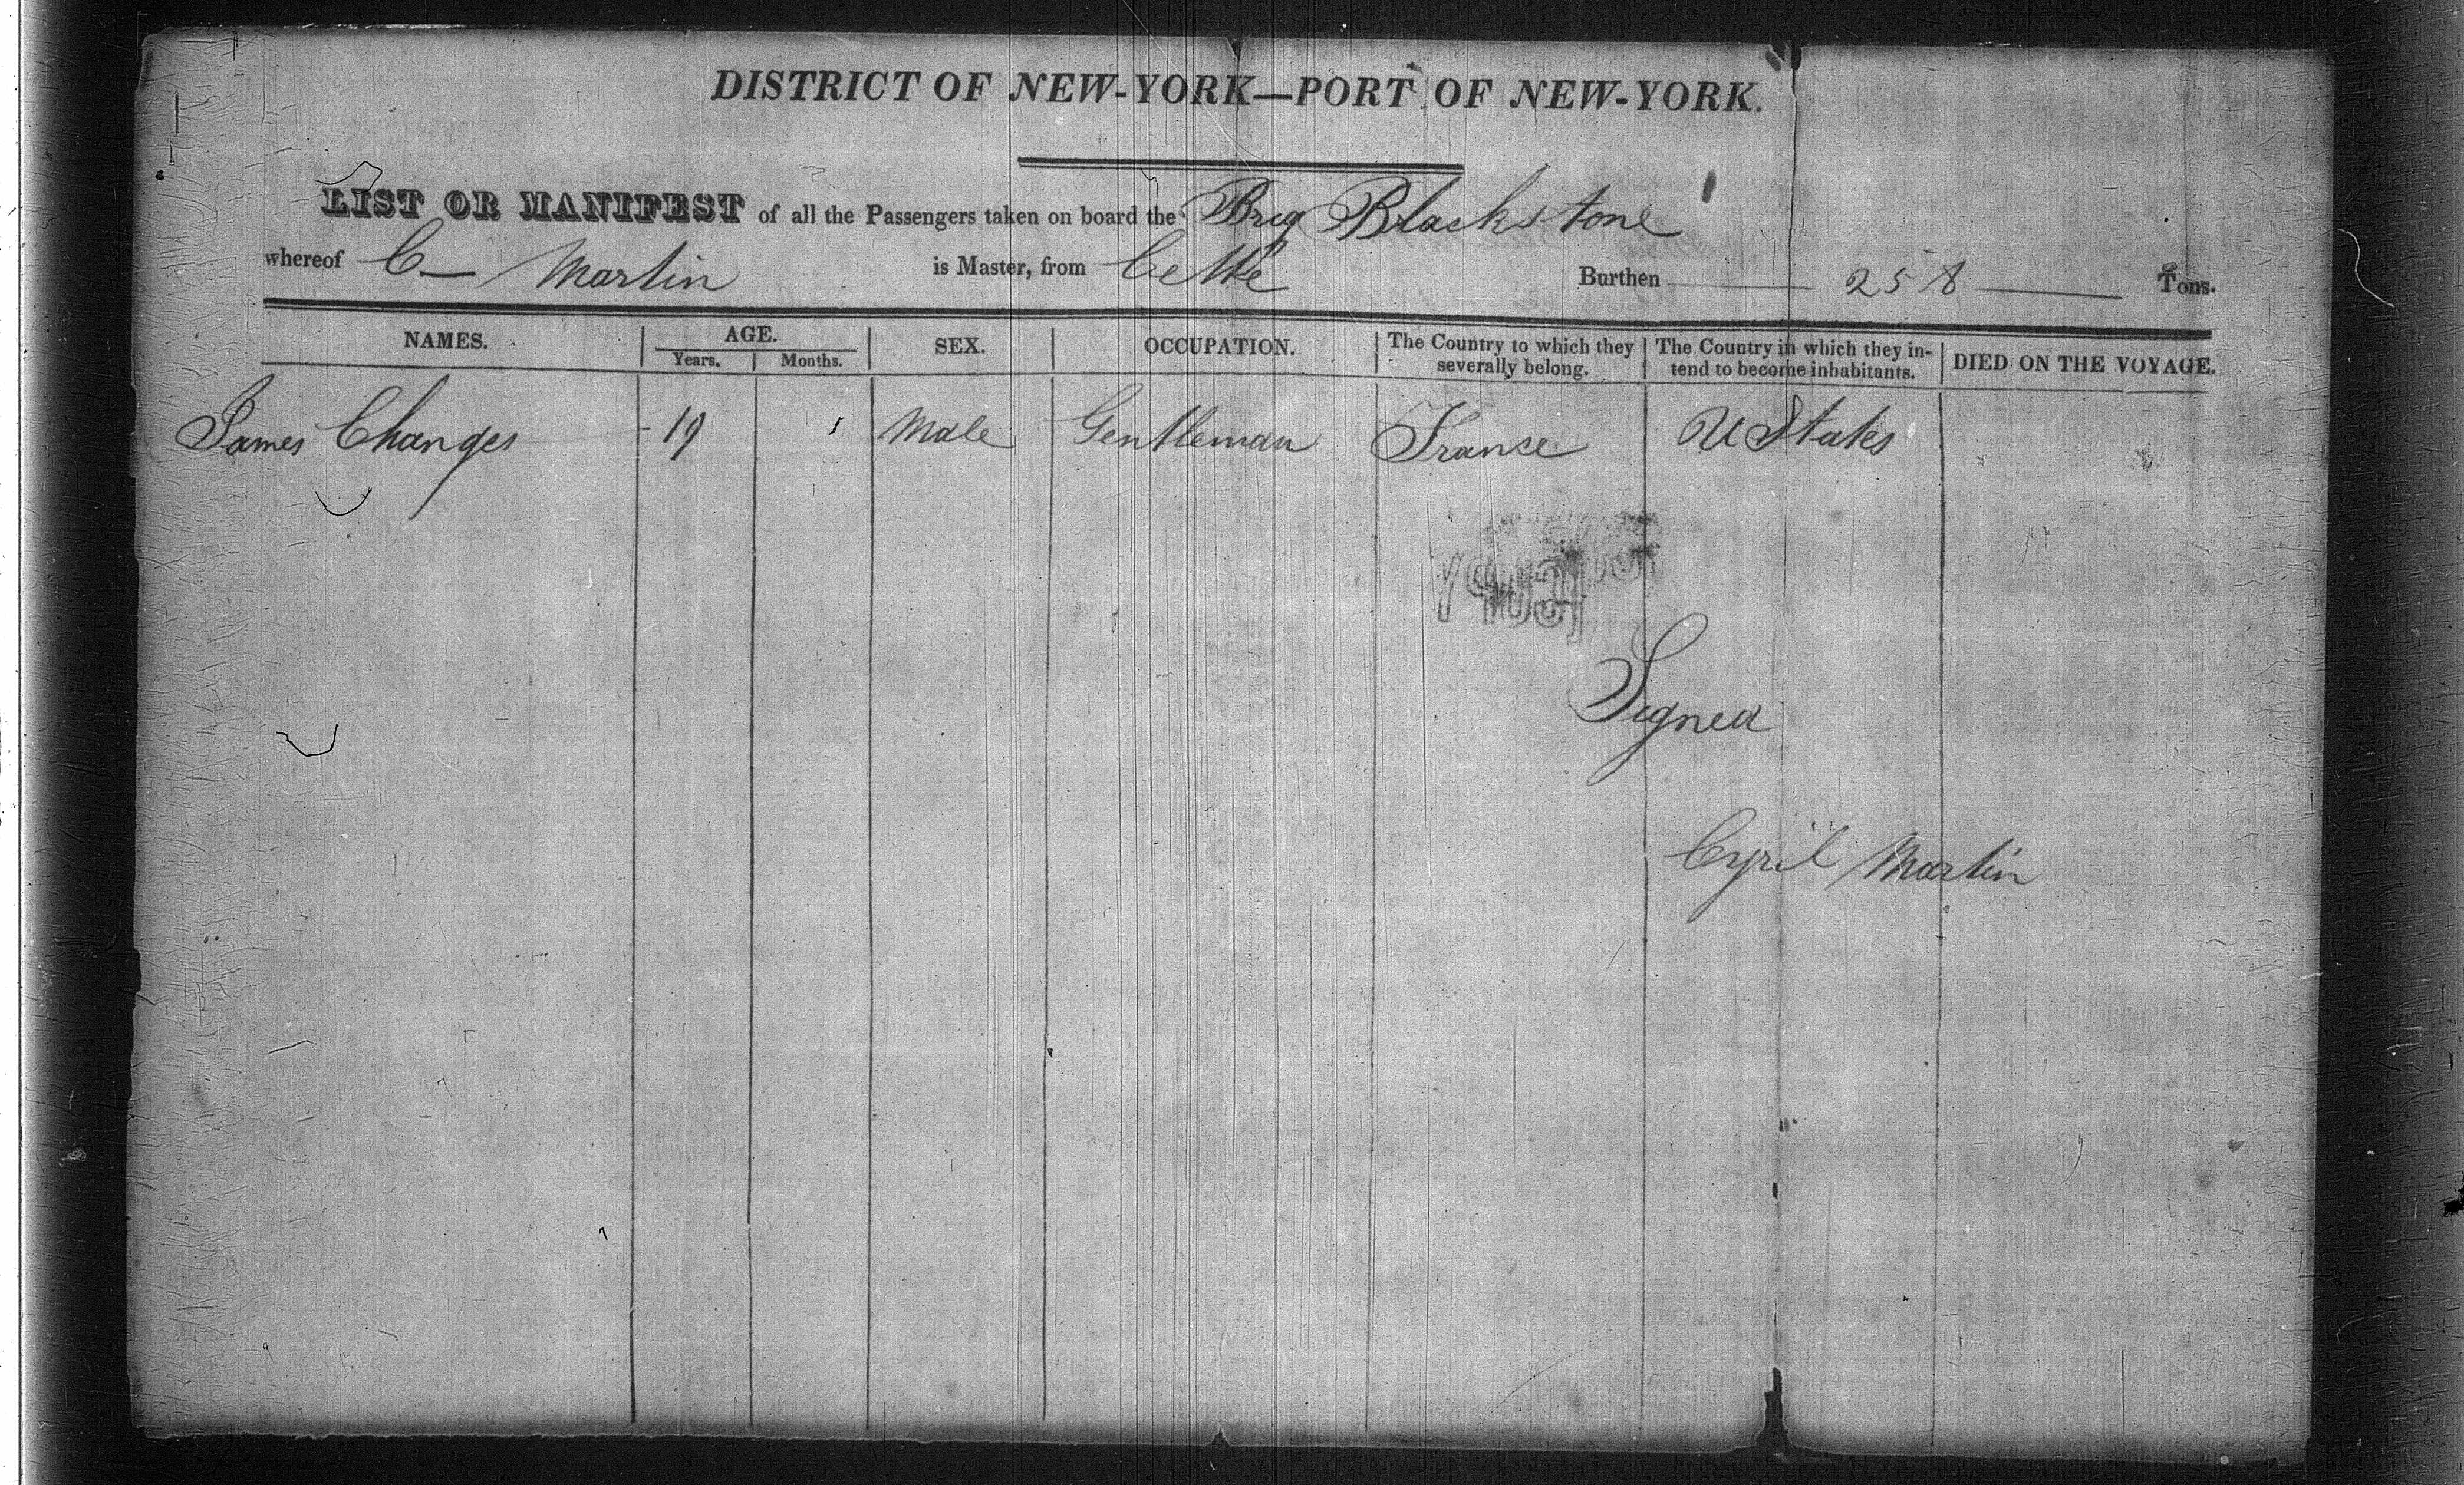 DISTRICT OF NEW-YORK—PORT OF NEW-YORK.
LIST OR MANIFEST of all the Passengers taken on board the Brig Blackstone
whereof C— Martin is Master, from Cette Burthen 258 Tons.
NAMES. AGE. SEX. OCCUPATION. The Country to which they severally belong. The Country in which they intend to become inhabitants. DIED ON THE VOYAGE.
Years. Months.
James Changes 19 Male Gentleman France U States
COPY
Signed
Cyril Martin